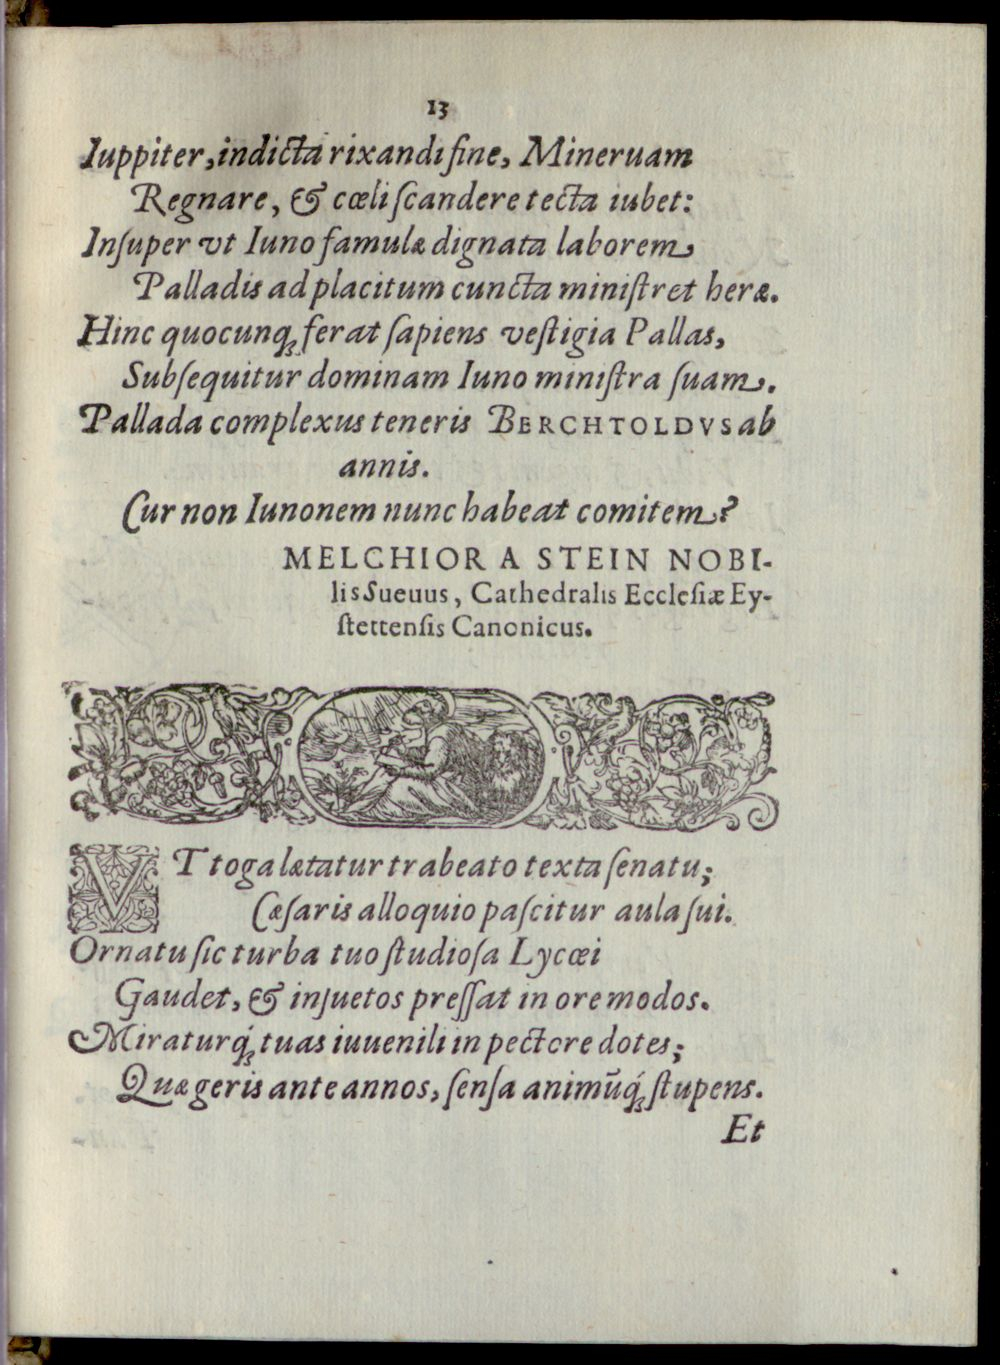 13
Iuppiter, indicta rixandi fine, Mineruam
Regnare, & cœli ſcandere tecta iubet:
Inſuper vt Iuno famulæ dignata laborem
Palladis ad placitum cuncta miniſtret heræ.
Hinc quocunq́ꝫ ferat ſapiens veſtigia Pallas,
Subſequitur dominam Iuno miniſtra ſuam.
Pallada complexus teneris BERCHTOLDVS ab
annis.
Cur non Iunonem nunc habeat comitem?
MELCHIOR A STEIN NOBI-
lis Sueuus, Cathedralis Eccleſiæ Ey-
ſtettenſis Canonicus.
VT toga lætatur trabeato texta ſenatu;
Cæſaris alloquio paſcitur aula ſui.
Ornatu ſic turba tuo ſtudioſa Lycœi
Gaudet, & inſuetos preſſat in ore modos.
Miraturq́ꝫ tuas iuuenili in pectore dotes;
Quæ geris ante annos, ſenſa animūq́ꝫ ſtupens.
Et